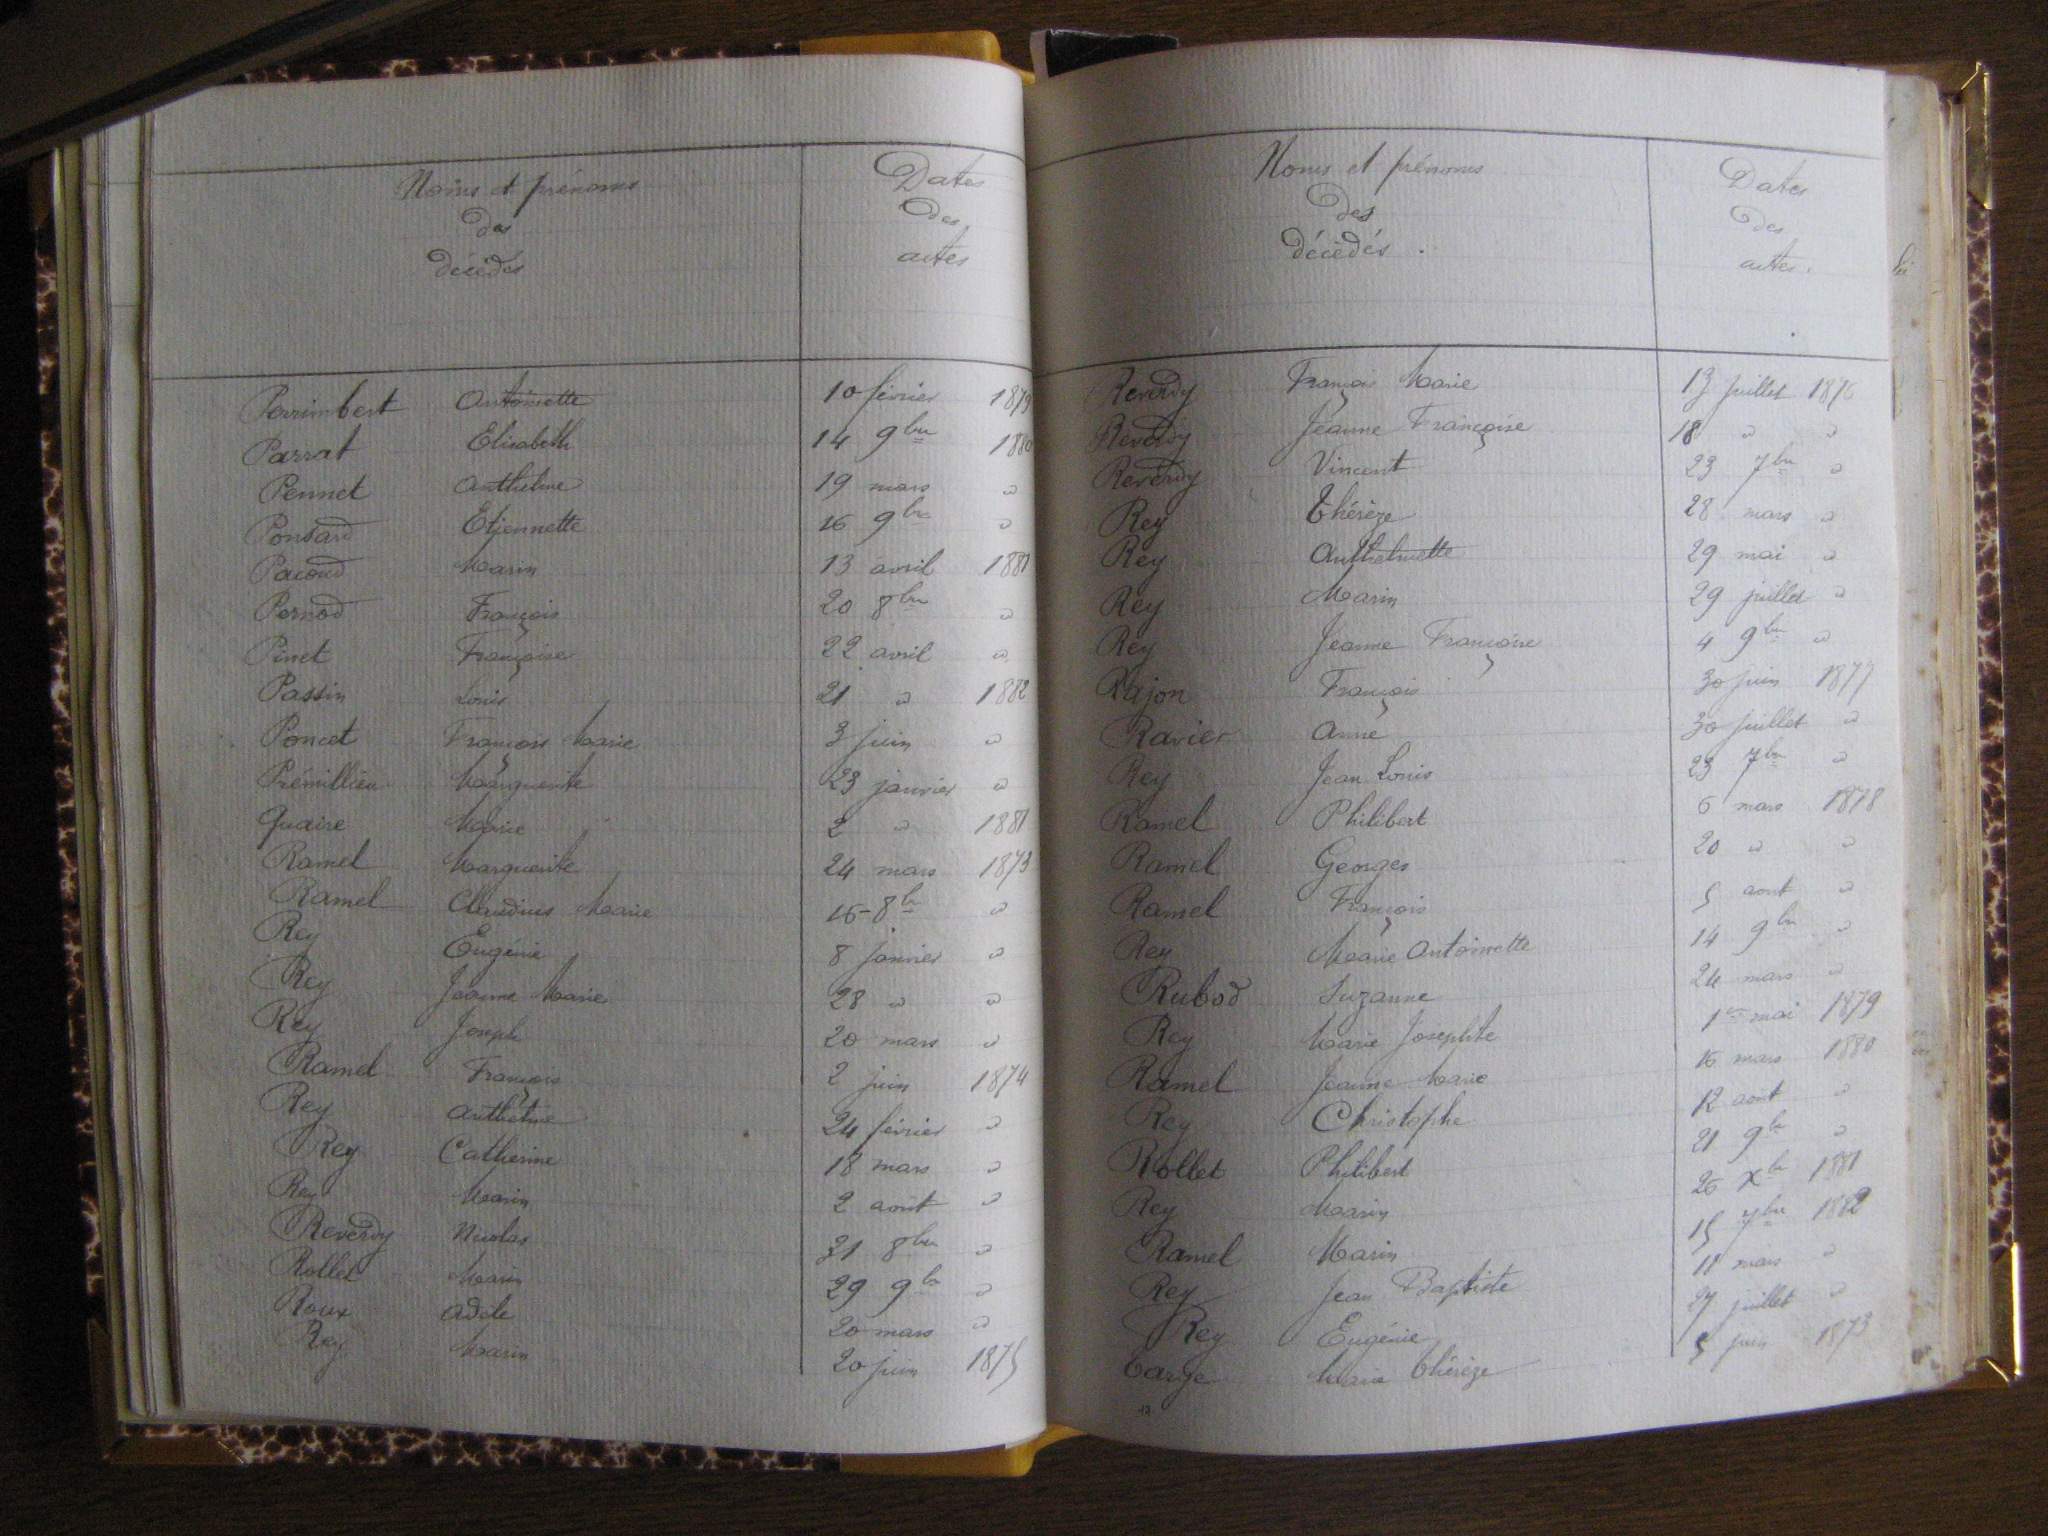 Noms et prénoms
des
décédés
Dates
des
actes
Perrimbert Antoinette 10 février 1879
Parrat Elisabeth 14 9bre 1880
Pennet Anthelme 19 mars "
Ponsard Etiennette 16 9bre "
Pacoud Marin 13 avril 1881
Pernod François 20 8bre "
Pinet Françoise 22 avril "
Passin Louis 21 " 1882
Poncet François Marie 3 juin "
Prémillieu Marguerite 23 janvier "
Quaire Marie 2 " 1881
Ramel Marguerite 24 mars 1873
Ramel Claudius Marie 16 8bre "
Rey Eugénie 8 janvier "
Rey Jeanne Marie 28 " "
Rey Joseph 20 mars "
Ramel François 2 juin 1874
Rey Anthelme 24 février "
Rey Catherine 18 mars "
Rey Marin 2 août "
Reverdy Nicolas 31 8bre "
Rollet Marin 29 9bre "
Roux Adèle 20 mars "
Rey Marin 20 juin 1875
Noms et prénoms
des
décédés.
Dates
des
actes.
Reverdy François Marie 13 juillet 1876
Reverdy Jeanne Françoise 18 " "
Reverdy Vincent 23 7bre "
Rey Thérèze 28 mars "
Rey Anthelmette 29 mai "
Rey Marin 29 juillet "
Rey Jeanne Françoise 4 9bre "
Rajon François 30 juin 1877
Ravier Anne 30 juillet "
Rey Jean Louis 23 7bre "
Ramel Philibert 6 mars 1878
Ramel Georges 20 " "
Ramel François 5 aout "
Rey Marie Antoinette 14 9bre "
Rubod Suzanne 24 mars "
Rey Marie Josephte 1er mai 1879
Ramel Jeanne Marie 16 mars 1880
Rey Christophe 12 aout "
Rollet Philibert 21 9bre "
Rey Marin 26 Xbre 1881
Ramel Marin 15 7bre 1882
Rey Jean Baptiste 11 mars "
Rey Eugénie 27 juillet "
Targe Marie Thérèze 5 juin 1873